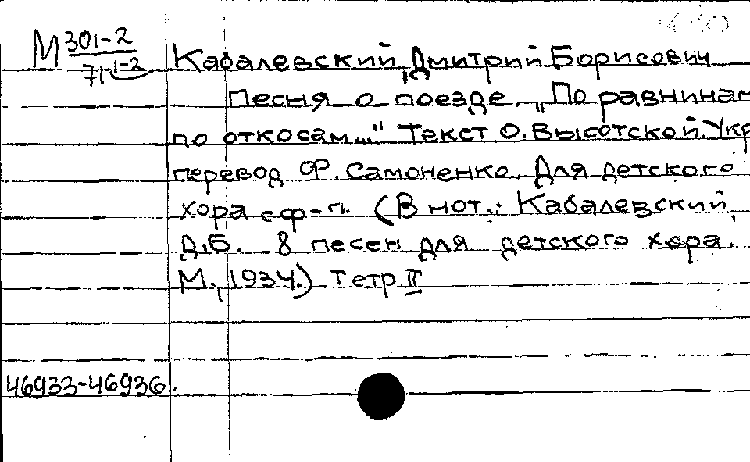 М 301-2
71 1-2
Кабалевский, Дмитрий Борисович
Песня о поезде. "По равнинам
по откосам..." Текст О. Высотской. Укр
перевод Ф. Самоненко. Для детского
хора с ф-п. (В нот.: Кабалевский,
Д.Б. 8 песен для детского хора.
М., 1934.) Тетр II
46933-46936.